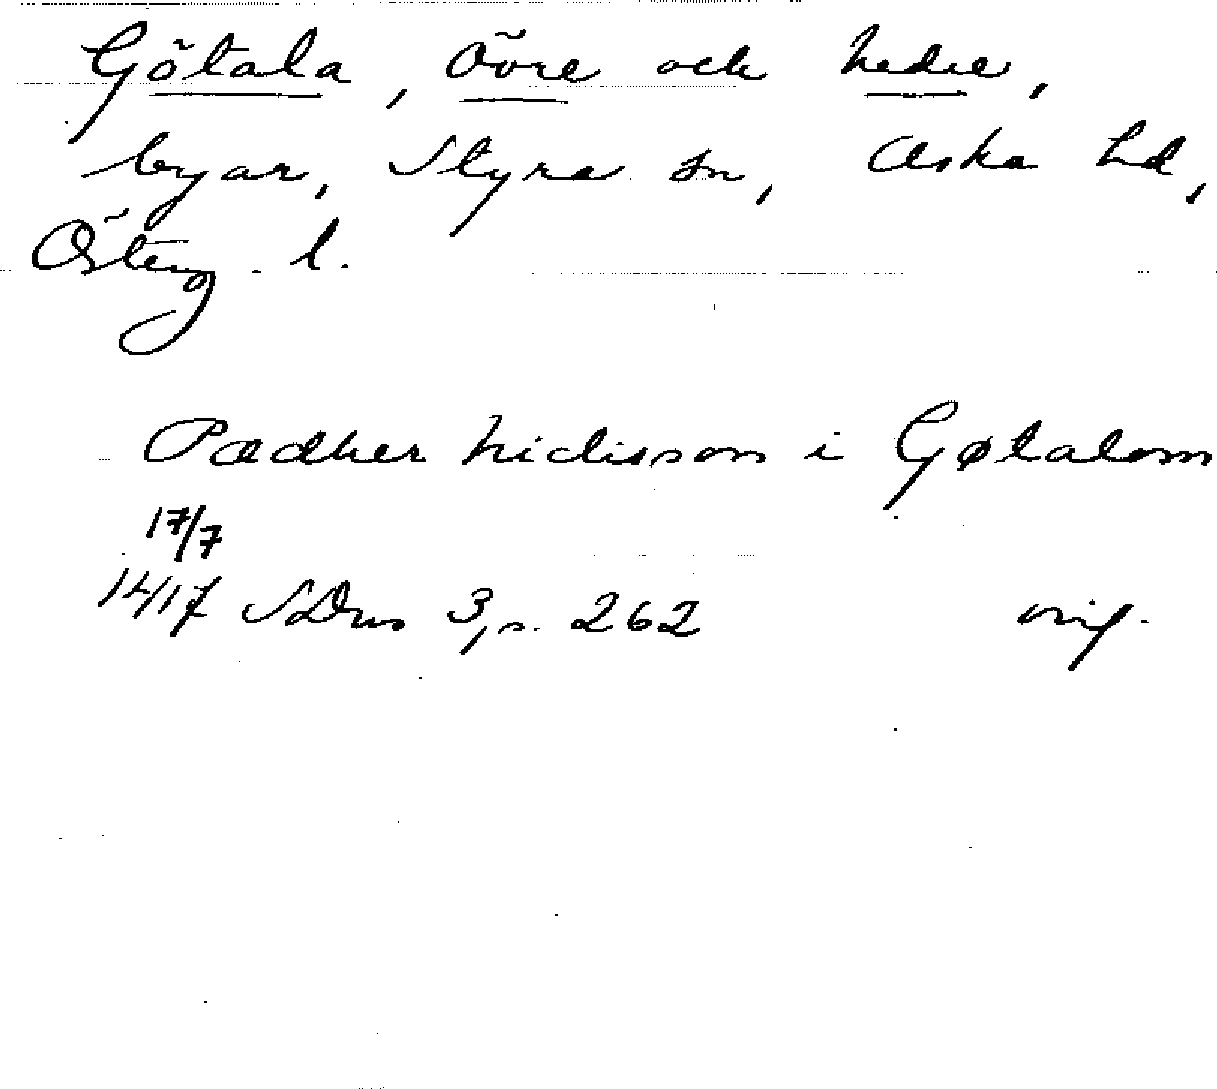 Götala, övre och nedre,
byar, Styra sn, Aska hd,
Österg. l.
Pædher nidisson i Gøtalom
17/7
1417 SDns 3, s. 262 orig.